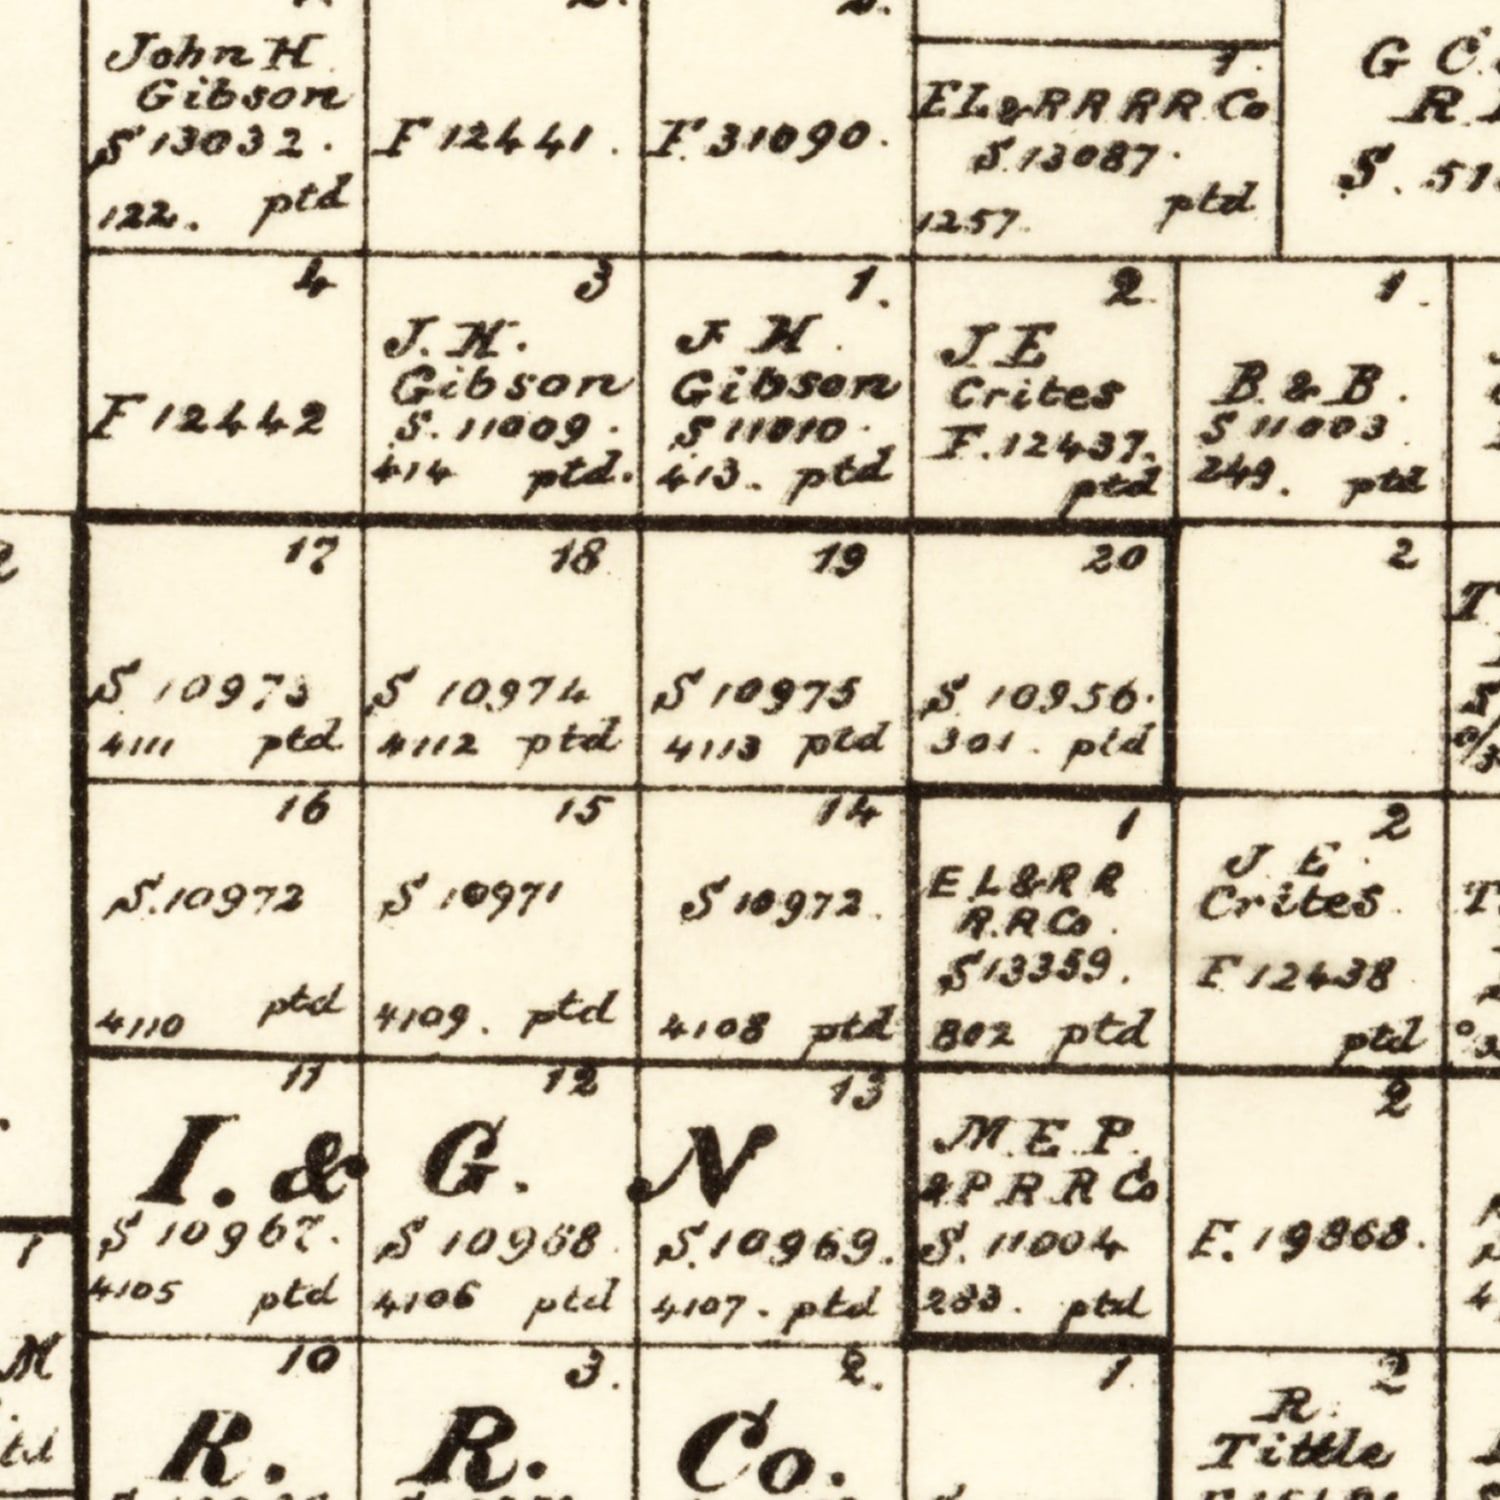 John H
Gibson
S 13032.
122. ptd
F 12441.
F. 31090.
1.
EL&RRRR Co
S. 13087.
1257. ptd
G C
R
S. 51
4
F 12442
3
J. H.
Gibson
S. 11009.
414 ptd.
1.
J H.
Gibson
S 11010.
413. ptd
2.
J E
Crites
F. 12437.
ptd
1.
B. & B.
S 11003
249. ptd
17
S 10973
4111 ptd.
18
S 10974
4112 ptd
19
S 10975
4113 ptd
20
S. 10956.
301. ptd
2
16
S. 10972
4110 ptd
15
S 10971
4109. ptd
14
S 10972.
4108 ptd
1
E L & R R
R. R Co.
S 13359.
802 ptd
2
J. E.
Crites.
F 12438
ptd
11
12
13
I. & G. N
S 10967.
4105 ptd
S 10968.
4106 ptd
S. 10969.
4107. ptd
M. E. P.
&P R R Co
S. 11004
283. ptd
2
F. 19868.
1
M
10
3.
2.
R. R. Co.
1.
2
R.
Tittle